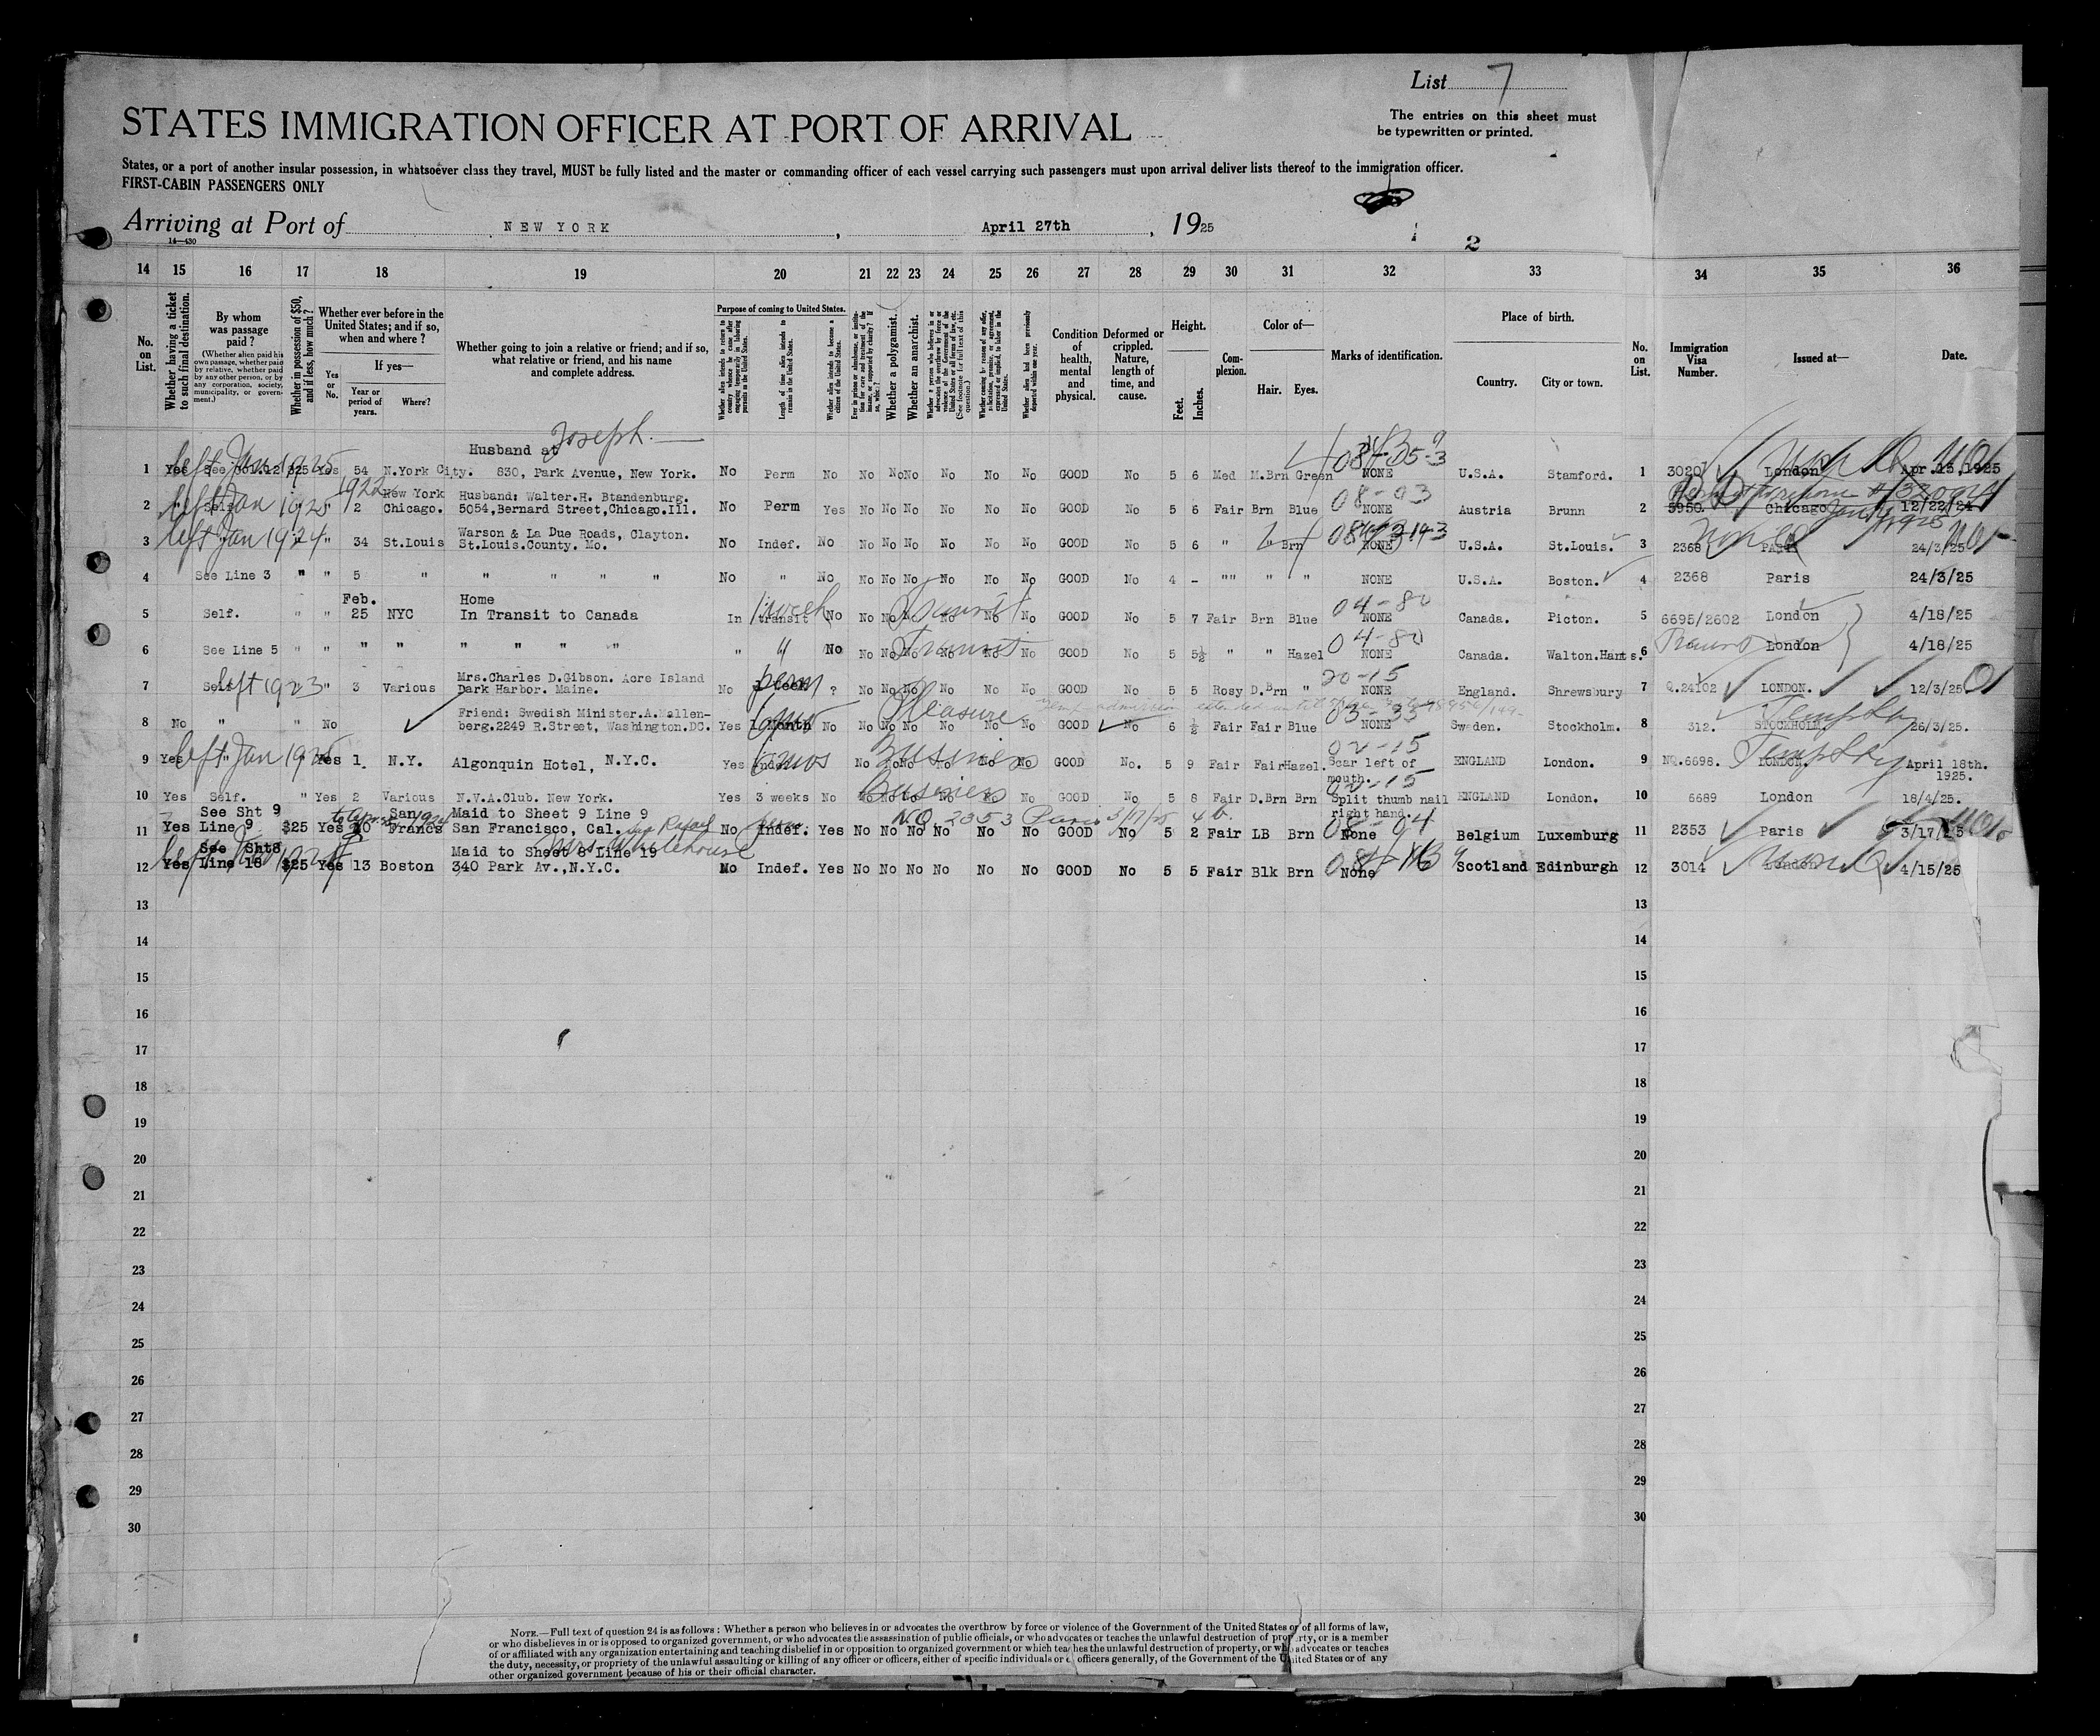 List 7
STATES IMMIGRATION OFFICER AT PORT OF ARRIVAL
The entries on this sheet must
be typewritten or printed.
States, or a port of another insular possession, in whatsoever class they travel, MUST be fully listed and the master or commanding officer of each vessel carrying such passengers must upon arrival deliver lists thereof to the immigration officer.
FIRST-CABIN PASSENGERS ONLY
Arriving at Port of NEW YORK, April 27th, 1925
14—430
2
14 15 16 17 18 19 20 21 22 23 24 25 26 27 28 29 30 31 32 33 34 35 36
No. on List.
Whether having a ticket to such final destination.
By whom was passage paid?
(Whether alien paid his own passage, whether paid by relative, whether paid by any other person, or by any corporation, society, municipality, or government.)
Whether in possession of $50, and if less, how much?
Whether ever before in the United States; and if so, when and where?
If yes—
Yes or No.
Year or period of years.
Where?
Whether going to join a relative or friend; and if so, what relative or friend, and his name and complete address.
Purpose of coming to United States.
Whether alien intends to return to country whence he came after engaging temporarily in laboring pursuits in the United States.
Length of time alien intends to remain in the United States.
Whether alien intends to become a citizen of the United States.
Ever in prison or almshouse, or institution for care and treatment of the insane, or supported by charity? If so, which?
Whether a polygamist.
Whether an anarchist.
Whether coming by reason of any offer, solicitation, promise, or agreement, expressed or implied, to labor in the United States.
Whether alien had been previously deported within one year.
Condition of health, mental and physical.
Deformed or crippled. Nature, length of time, and cause.
Height.
Feet. Inches.
Complexion.
Color of—
Hair. Eyes.
Marks of identification.
Place of birth.
Country. City or town.
No. on List.
Immigration Visa Number.
Issued at—
Date.
Joseph.
Husband at
left Jan 1925
1 Yes See $25 Yes 54 N.York City. 830, Park Avenue, New York. No Perm No No No No No No No GOOD No 5 6 Med M.Brn Green NONE U.S.A. Stamford. 1 3020 London Apr.15,1925
left Jan 1925 1922 New York Husband: Walter.H. Btandenburg. 08-03
2 Self " 2 Chicago. 5054,Bernard Street,Chicago.Ill. No Perm Yes No No No No No No GOOD No 5 6 Fair Brn Blue NONE Austria Brunn 2 5950. Chicago 12/22/24
left Jan 1924 Warson & La Due Roads, Clayton.
3 " " 34 St.Louis St.Louis.County. Mo. No Indef. No No No No No No No GOOD No 5 6 " Brn NONE U.S.A. St.Louis. 3 2368 Paris 24/3/25
4 See Line 3 " " 5 " " " " " No " No No No No No No No GOOD No 4 - "" " " NONE U.S.A. Boston. 4 2368 Paris 24/3/25
Feb. Home 1 week Transit 04-80
5 Self. " " 25 NYC In Transit to Canada In transit No No No No No No No GOOD No 5 7 Fair Brn Blue NONE Canada. Picton. 5 6695/2602 London 4/18/25
Transit 04-80
6 See Line 5 " " " " " " " " " " No No No No No No No GOOD No 5 5½ " " Hazel NONE Canada. Walton.Hants. 6 London 4/18/25
left 1923 Mrs.Charles D.Gibson. Acre Island perm 20-15
7 Self " 3 Various Dark Harbor. Maine. No ? No No No No No No GOOD No 5 5 Rosy D.Brn " NONE England. Shrewsbury 7 Q.24102 LONDON. 12/3/25
Friend: Swedish Minister.A.Wallen- Pleasure 03-33
8 No " " No berg.2249 R.Street, Washington.DC. Yes 1 Month No No No No No No No GOOD No 6 ½ Fair Fair Blue NONE Sweden. Stockholm. 8 312. STOCKHOLM 26/3/25.
left Jan 1925 6 mos Business 02-15
9 Yes " Yes 1 N.Y. Algonquin Hotel, N.Y.C. Yes Indef No No No No No No GOOD No. 5 9 Fair Fair Hazel. Scar left of mouth. ENGLAND London. 9 NQ.6698. LONDON. April 18th. 1925.
Business 02-15
10 Yes Self. " Yes 2 Various N.V.A.Club. New York. Yes 3 weeks No No No No No No No GOOD No 5 8 Fair D.Brn Brn Split thumb nail right hand. ENGLAND London. 10 6689 London 18/4/25.
See Sht 9 San Maid to Sheet 9 Line 9 NQ 2353 Paris 3/17/25 4 b. 08-04
11 Yes Line 9 $25 Yes Francs San Francisco, Cal. San Rafael No Indef. Yes No No No No No No GOOD No 5 2 Fair LB Brn None Belgium Luxemburg 11 2353 Paris 3/17/25
See Sht8 Maid to Sheet 8 Line 19 Mrs. Whitehouse
12 Yes Line 18 $25 Yes 13 Boston 340 Park Av.,N.Y.C. No Indef. Yes No No No No No No GOOD No 5 5 Fair Blk Brn None Scotland Edinburgh 12 3014 London 4/15/25
13 13
14 14
15 15
16 16
17 17
18 18
19 19
20 20
21 21
22 22
23 23
24 24
25 25
26 26
27 27
28 28
29 29
30 30
NOTE.—Full text of question 24 is as follows: Whether a person who believes in or advocates the overthrow by force or violence of the Government of the United States or of all forms of law,
or who disbelieves in or is opposed to organized government, or who advocates the assassination of public officials, or who advocates or teaches the unlawful destruction of property, or is a member
of or affiliated with any organization entertaining and teaching disbelief in or opposition to organized government or which teaches the unlawful destruction of property, or who advocates or teaches
the duty, necessity, or propriety of the unlawful assaulting or killing of any officer or officers, either of specific individuals or of officers generally, of the Government of the United States or of any
other organized government because of his or their official character.